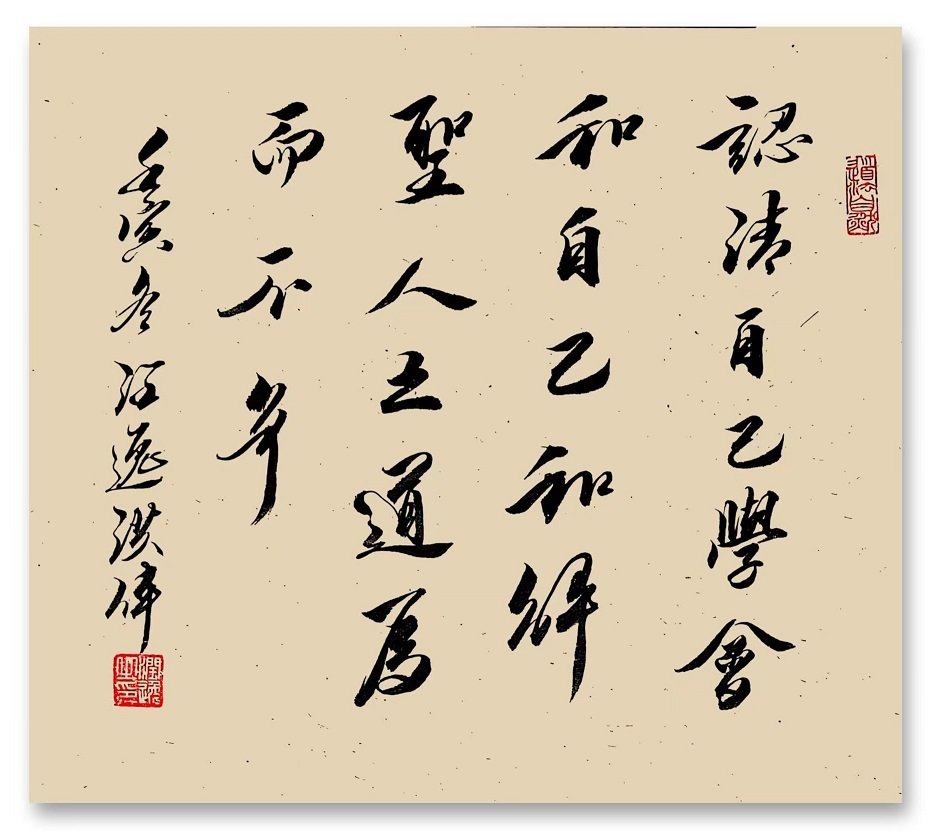 道法自然
認清自己學會
和自己和解
聖人之道為
而不爭
壬寅冬逸洪偉